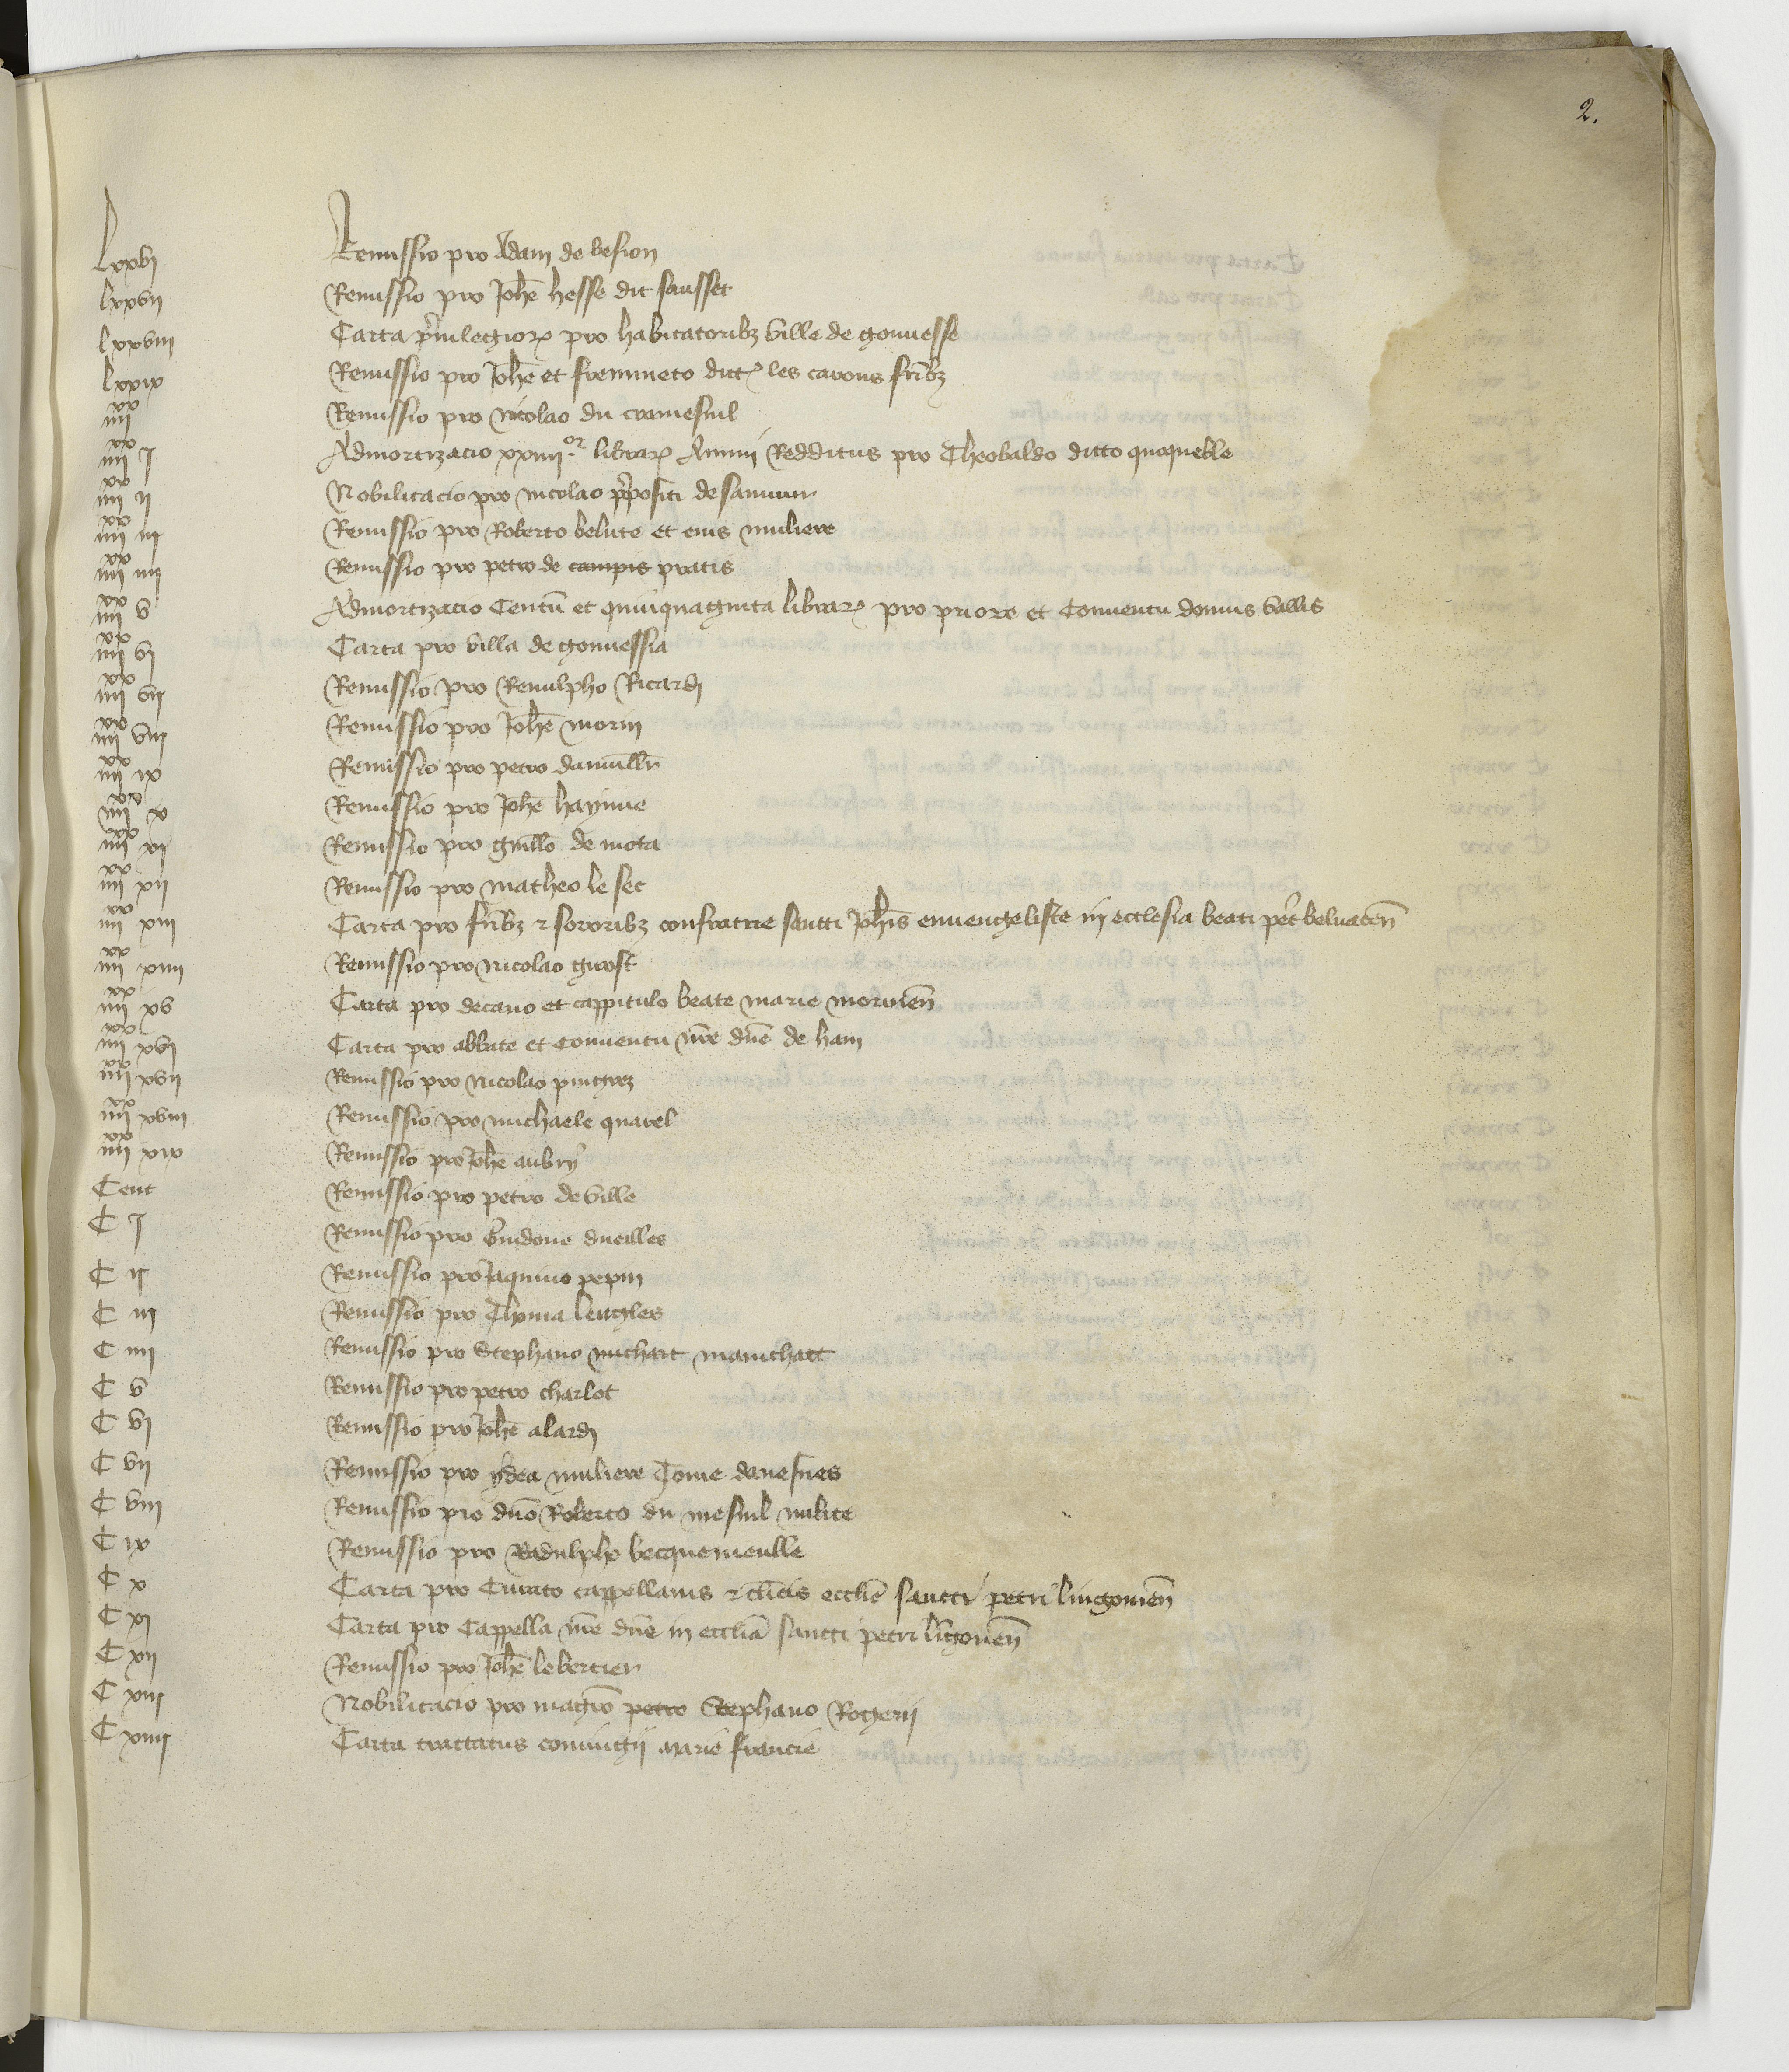 2.
lxxvi Remissio pro Adam de besion
lxxvii Remissio pro Joh̄e hesse dit sausset
lxxviii Carta p̄uilegioꝝ pro habitatoribꝫ ville de gonnesse
lxxix Remissio pro Joh̄e et fremineto dictꝝ les carons fr̄ibꝫ
iiii^xx Remissio pro Nicolao du tramesnil
iiii^xx j Admortizacio xxiiii^or libraꝝ Annui Redditus pro Theobaldo dicto
iiii^xx ii Nobilitacio pro nicolao p̄positi de samuur
iiii^xx iii Remissio pro Roberto belute et eius muliere
iiii^xx iiii Remissio pro petro de campis pratis
iiii^xx v Admortizacio Centū et quinquaginta libraꝝ pro priore et Conuentu domus vallis
iiii^xx vi Carta pro villa de gonnessia
iiii^xx vii Remissio pro Renulpho Ricardi
iiii^xx viii Remissio pro Joh̄e morin
iiii^xx ix Remissio pro petro
iiii^xx x Remissio pro Joh̄e haymue
iiii^xx xi Remissio pro guill̄o de mota
iiii^xx xii Remissio pro matheo le sec
iiii^xx xiii Carta pro fr̄ibꝫ ⁊ sororibꝫ confratrie sancti Joh̄is euuengeliste in ecclesia beati pet̄ beluacen̄
iiii^xx xiiii Remissio pro Nicolao girost
iiii^xx xv Carta pro decano et cappitulo beate marie morinen̄
iiii^xx xvi Carta pro abbate et conuentu nr̄e dn̄e de ham
iiii^xx xvii Remissio pro Nicolao pingrez
iiii^xx xviii Remissio pro michaele quarel
iiii^xx xix Remissio pro Joh̄e aubry
Cent Remissio pro petro de ville
C j Remissio pro dueilles
C ii Remissio pro Jaquino pepin
C iii Remissio pro Thoma lengles
C iiii Remissio pro Stephano michart manichart
C v Remissio pro petro charlot
C vi Remissio pro Joh̄e alardi
C vii Remissio pro ydea muliere Come dauesnes
C viii Remissio pro dn̄o Roberto du mesnil milite
C ix Remissio pro Radulpho becquemeulle
C x Carta pro Curato cappellanis ⁊ cl̄icis eccl̄ie sancti petri lingonien̄
C xi Carta pro Cappella nr̄e dn̄e in eccl̄ia sancti petri līgonen̄
C xii Remissio pro Joh̄e lebertier
C xiii Nobilitacio pro magr̄o petro Stephano Rogerii
C xiiii Carta tractatus coniugii marie francie